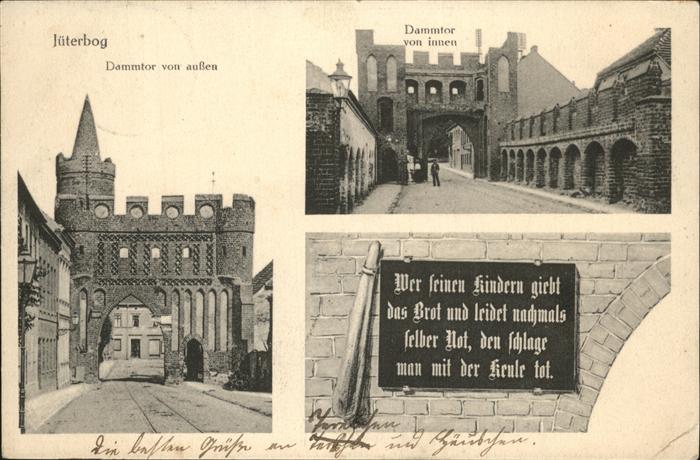 Jüterbog
Dammtor von außen
Dammtor
von innen
Wer seinen Kindern giebt
das Brot und leidet nachmals
selber Not, den schlage
man mit der Keule tot.
Die besten Grüße an und Häuschen.